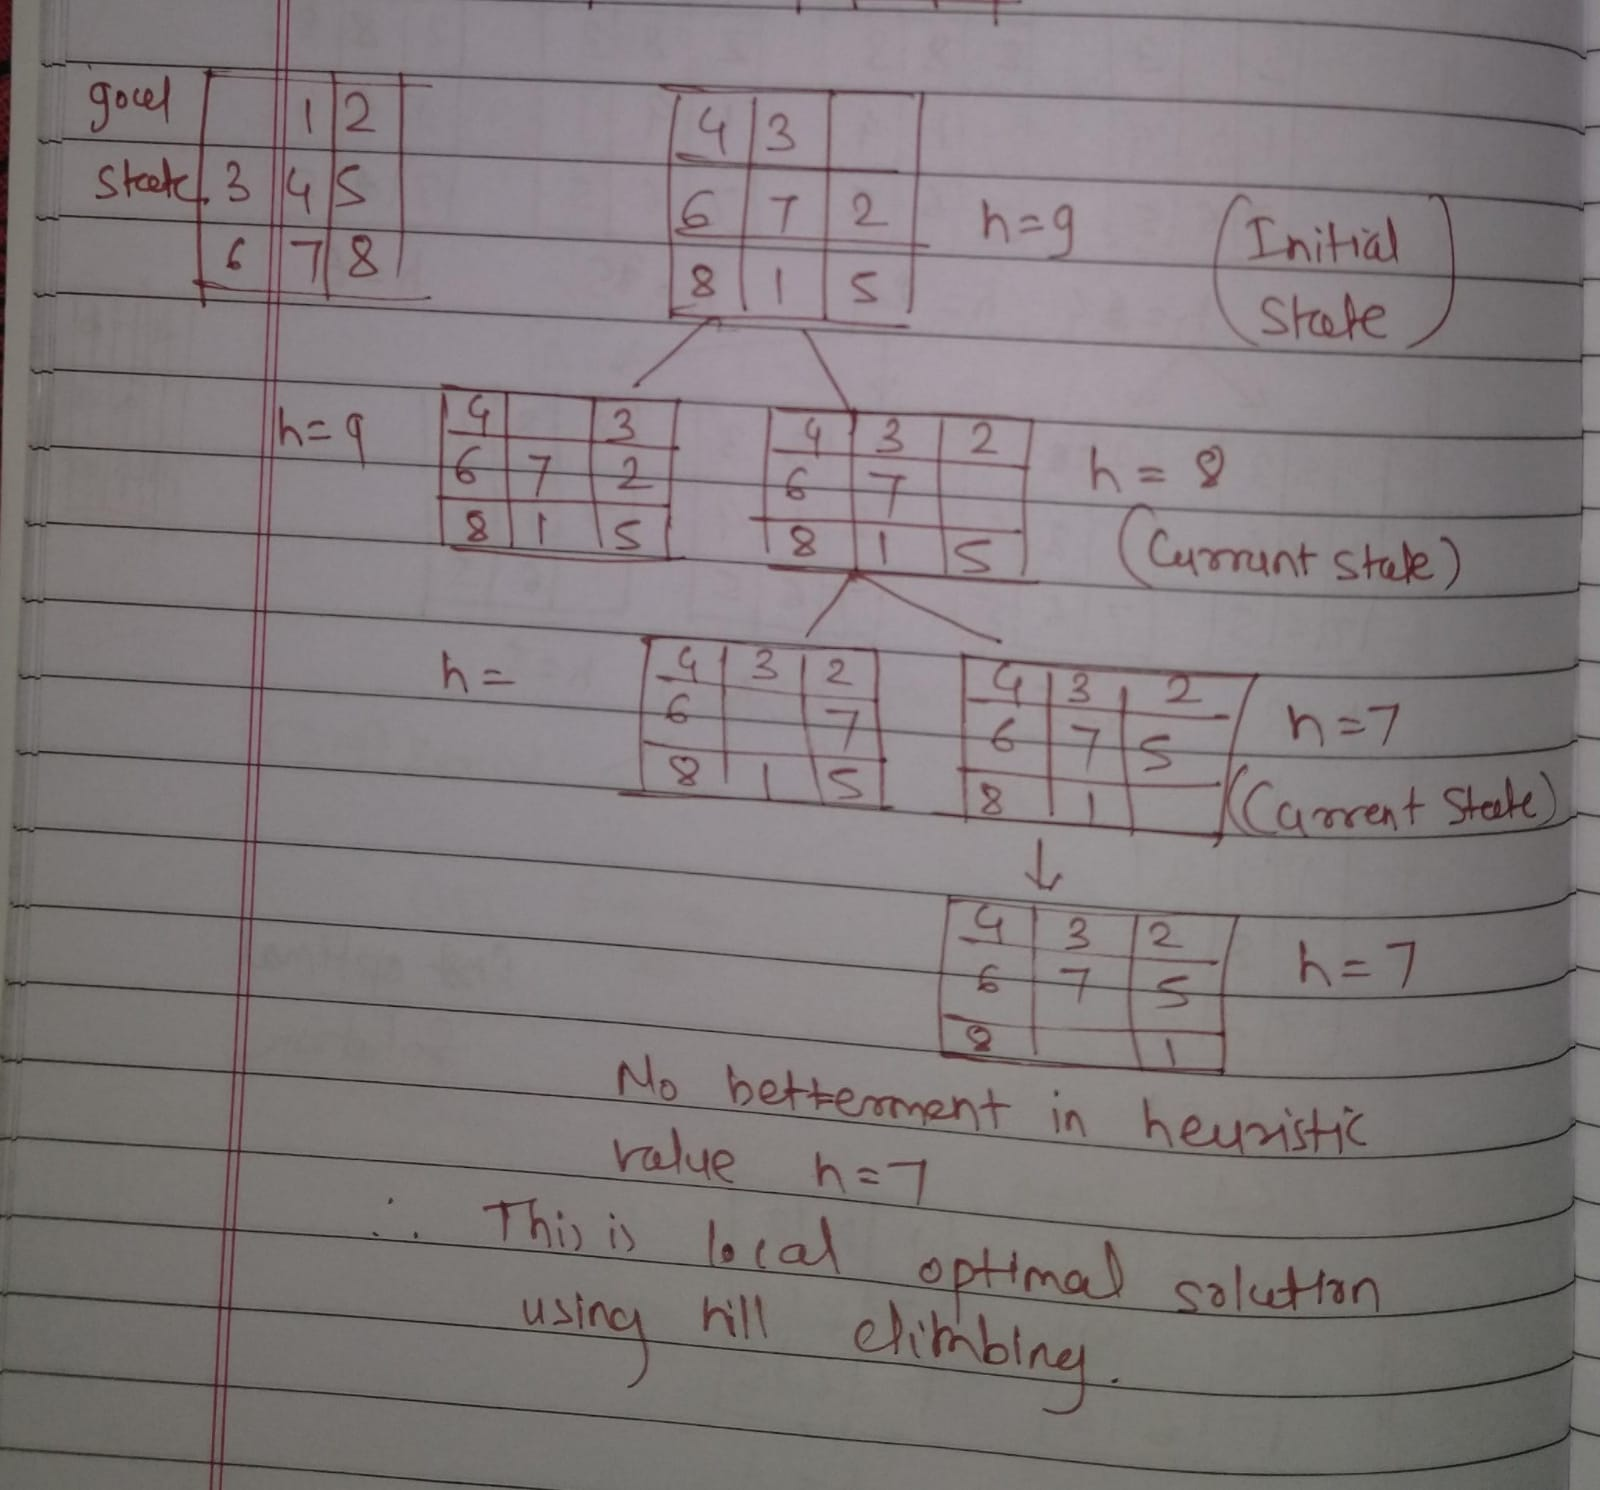 goal 1 2
state 3 4 5
6 7 8
4 3
6 7 2 h=9 (Initial
8 1 5 State)
h=9 4 3
6 7 2
8 1 5
4 3 2 h=8
6 7
8 1 5 (Currant state)
h= 4 3 2
6 7
8 1 5
4 3 2 h=7
6 7 5
8 1 (Current State)
↓
4 3 2
6 7 5 h=7
8 1
No betterment in heuristic
value h=7
∴ This is local optimal solution
using hill climbing.